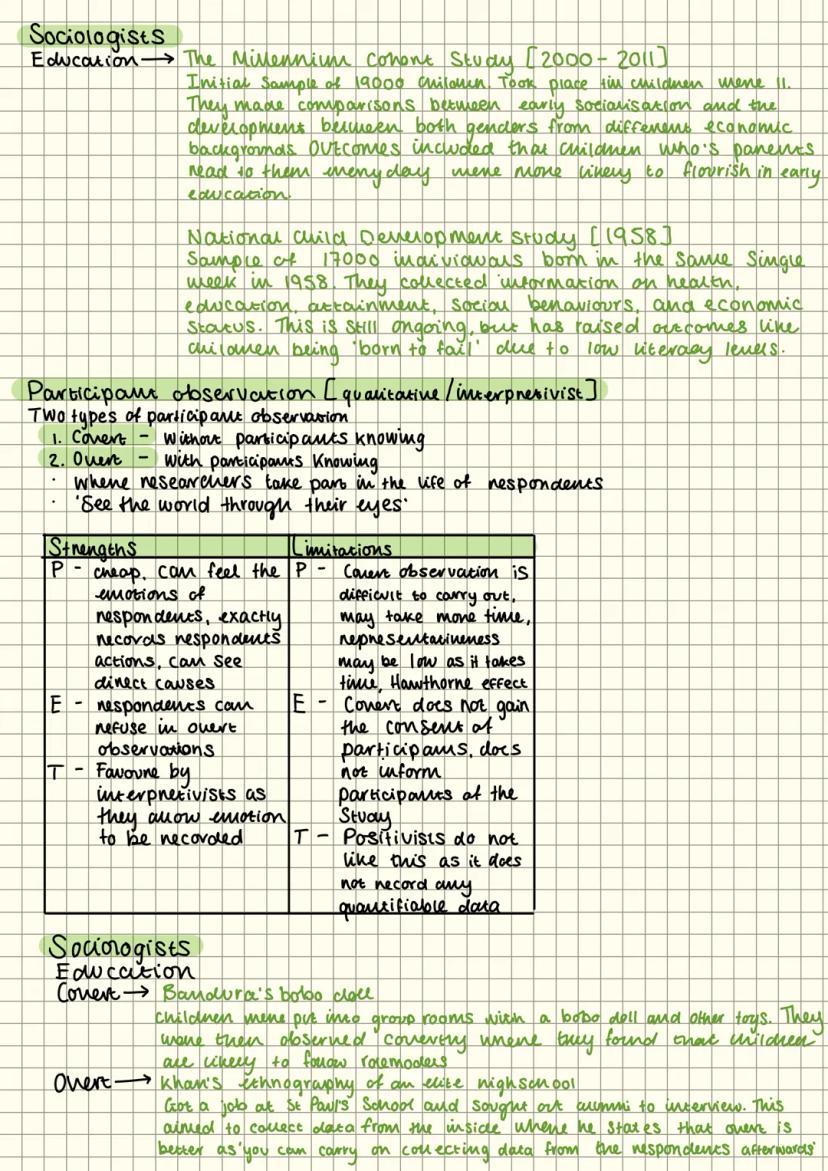 Sociologists
Education → The Millennium Cohort Study [2000 - 2011]
Initial sample of 19000 children. Took place till children were 11.
They made comparisons between early socialisation and the
development between both genders from different economic
backgrounds. Outcomes included that children who's parents
read to them everyday were more likely to flourish in early
education.
National Child Development Study [1958]
Sample of 17000 individuals born in the same single
week in 1958. They collected information on health,
education, attainment, social behaviours, and economic
status. This is still ongoing, but has raised outcomes like
children being 'born to fail' due to low literacy levels.
Participant observation [qualitative/interpretivist]
Two types of participant observation
1. Covert - Without participants knowing
2. Overt - With participants knowing
· Where researchers take part in the life of respondents
· 'See the world through their eyes'
Strengths
P - cheap, can feel the
emotions of
respondents, exactly
records respondents
actions, can see
direct causes
E - respondents can
refuse in overt
observations
T - Favoure by
interpretivists as
they allow emotion
to be recorded
Limitations
P - Covert observation is
difficult to carry out,
may take more time,
representativeness
may be low as it takes
time, Hawthorne effect
E - Covert does not gain
the consent of
participants, does
not inform
participants of the
study
T - Positivists do not
like this as it does
not record any
quantifiable data
Sociologists
Education
Covert → Bandura's bobo doll
Children were put into group rooms with a bobo doll and other toys. They
were then observed covertly where they found that children
are likely to follow rolemodels
Overt → Khan's ethnography of an elite highschool
Got a job at St Paul's School and sought out alumni to interview. This
aimed to collect data from the 'inside' where he states that overt is
better as 'you can carry on collecting data from the respondents afterwards'